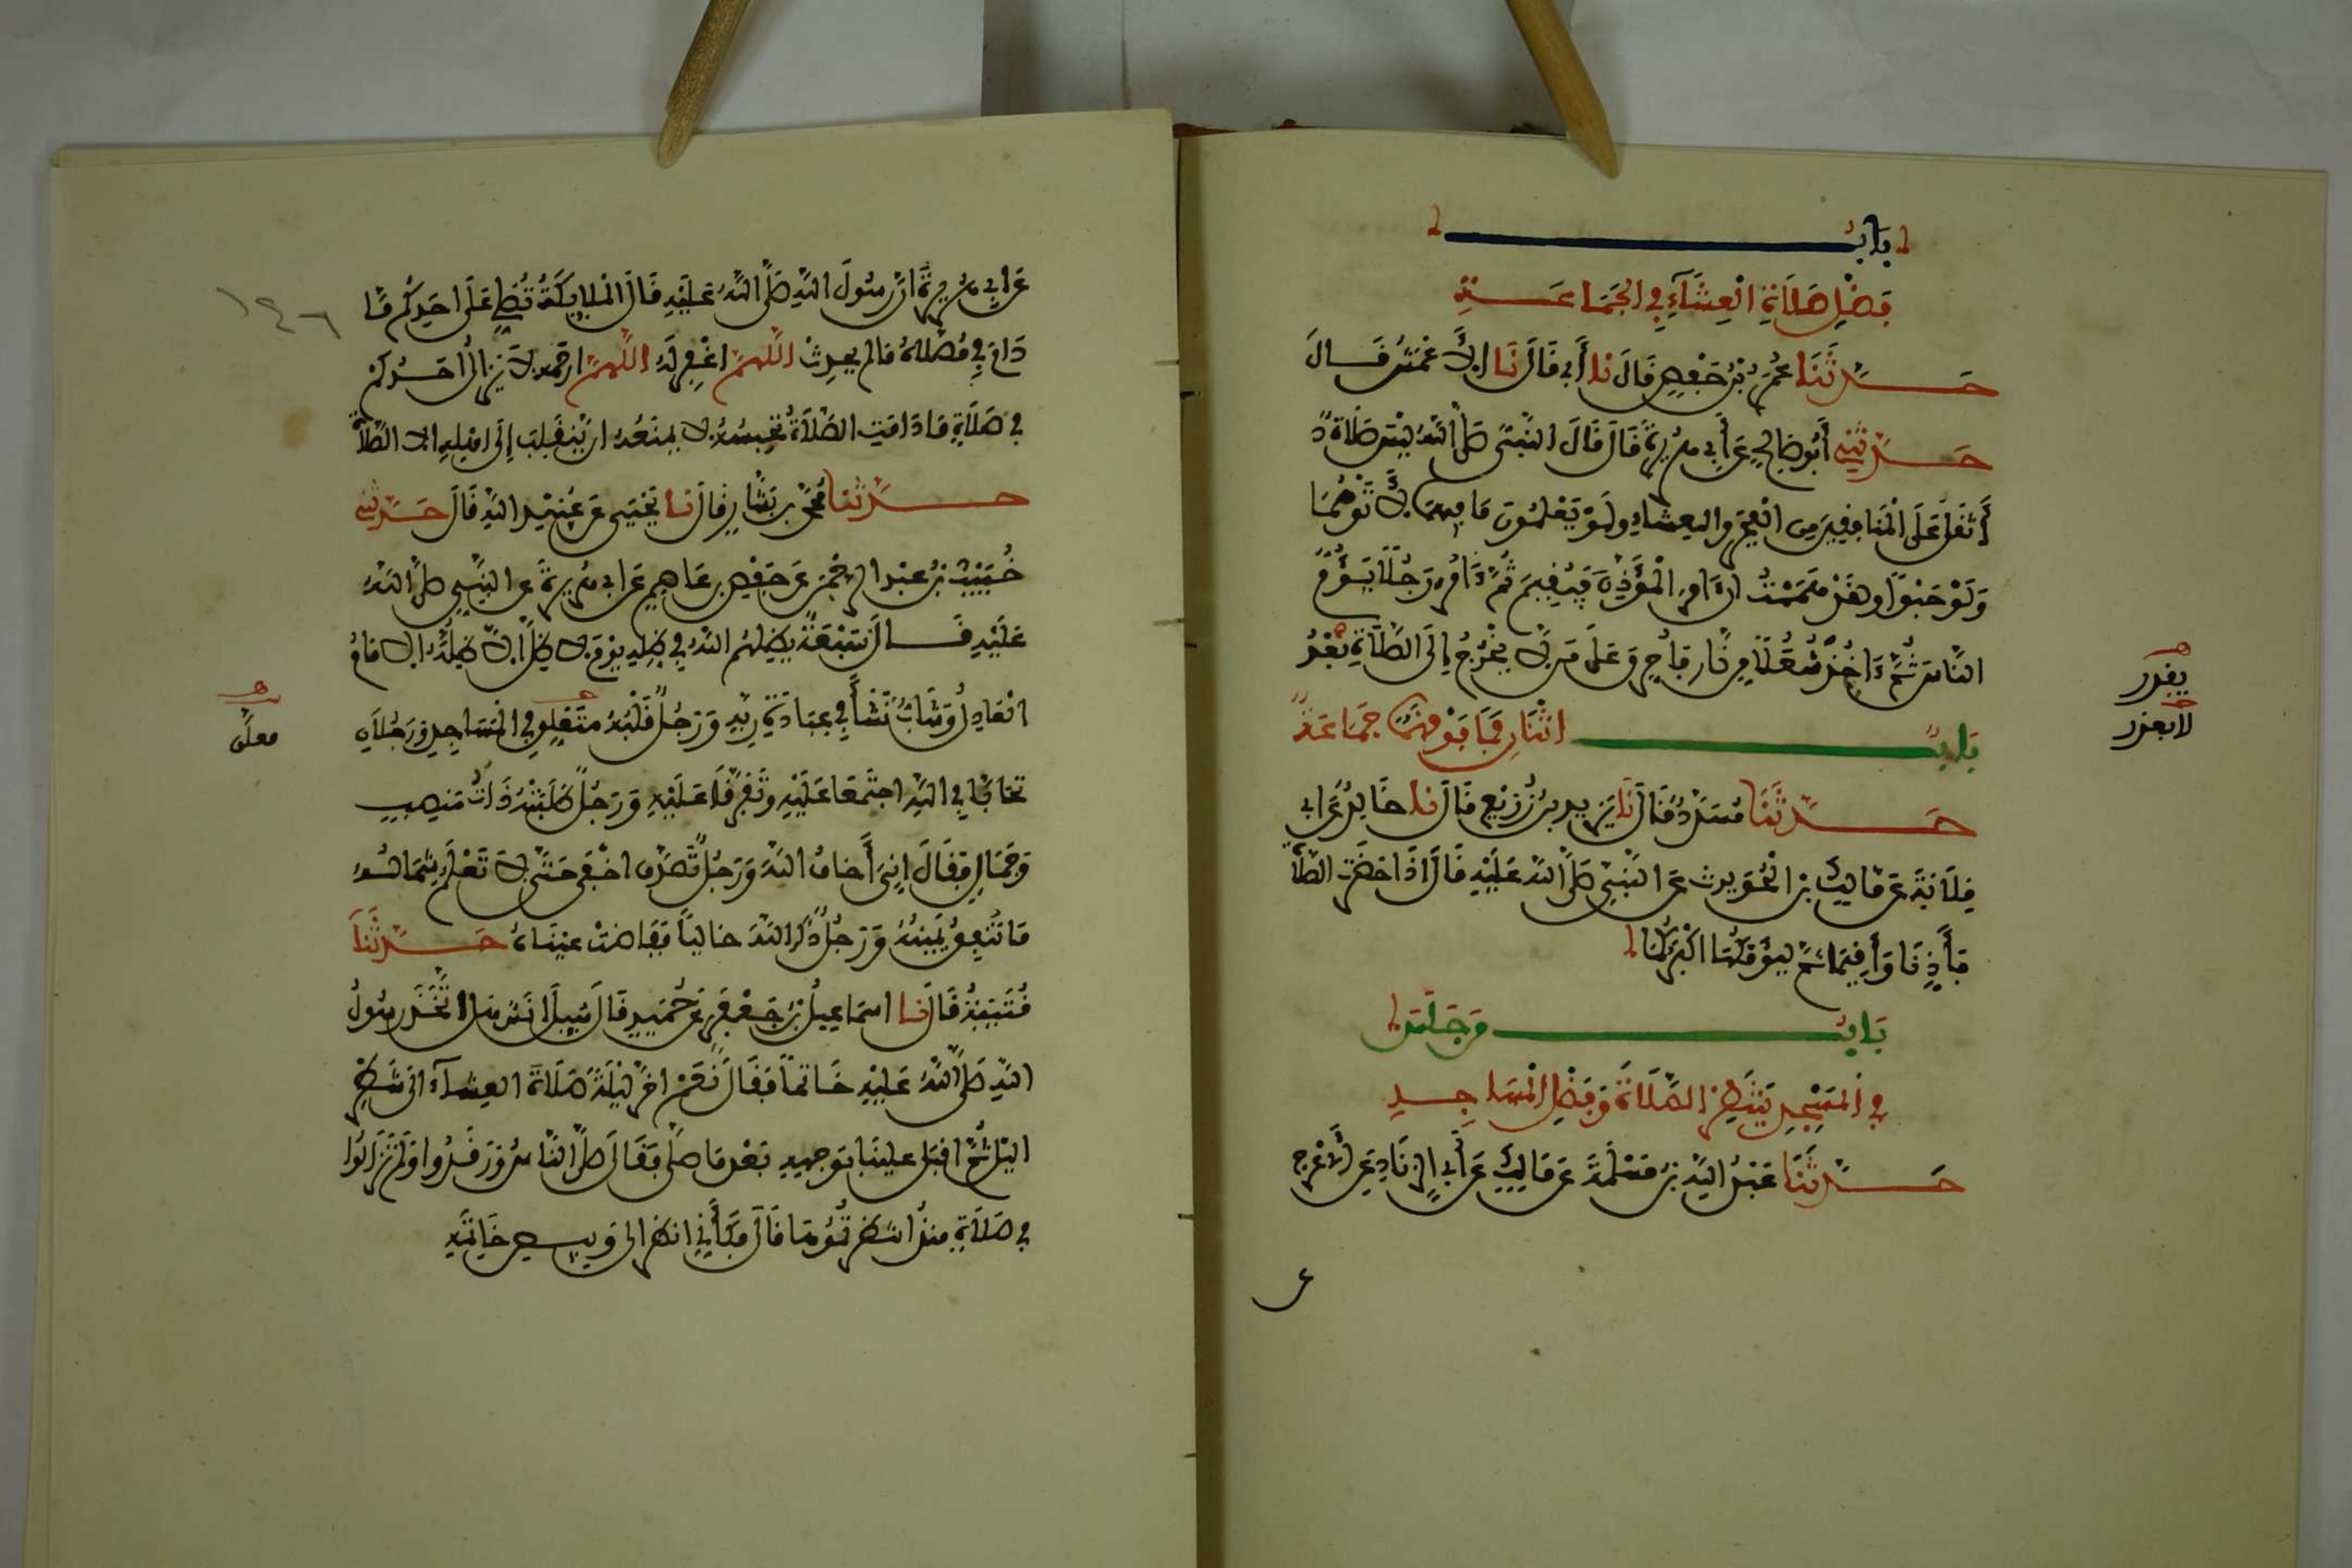 باب
فضل صلاة العشاء في الجماعة
حدثنا عمر بن حفص قال نا أبي قال نا الأعمش قال
حدثني أبو صالح عن أبي هريرة قال قال النبي صلى الله ليس صلاة
أثقل على المنافقين من الفجر والعشاء ولو يعلمون ما فيهما لأتوهما
ولو حبوا ولقد هممت ان ءامر المؤذن فيقيم ثم ءامر رجلا يؤم
الناس ثم ءاخذ شعلا من نار فأحرق على من لا يخرج إلى الصلاة بعد
يقدر
لا بعذر
باب اثنان فما فوقهما جماعة
حدثنا مسدد قال نا يزيد بن زريع قال نا خالد عن ابي
قلابة عن مالك بن الحويرث عن النبي صلى الله عليه قال اذا حضرت الصلاة
فأذنا وأقيما ثم ليؤمكما اكبركما
باب من جلس
في المسجد ينتظر الصلاة وفضل المساجد
حدثنا عبد الله بن مسلمة عن مالك عن أبي الزناد عن الأعرج
ع
١٤٦
عن ابي هريرة ان رسول الله صلى الله عليه قال الملايكة تصلي على احدكم ما
دام في مصلاه مالم يحدث اللهم اغفر له اللهم ارحمه لا يزال احدكم
في صلاة ما دامت الصلاة تحبسه لا يمنعه ان ينقلب إلى اهله الا الصلاة
حدثنا محمد بن بشار قال نا يحيى عن عبيد الله قال حدثني
خبيب بن عبد الرحمن عن حفص بن عاصم عن ابي هريرة عن النبي صلى الله
عليه قال سبعة يظلهم الله في ظله يوم لا ظل الا ظله الامام
العادل وشاب نشأ في عبادة ربه ورجل قلبه متعلق في المساجد ورجلان
معلق
تحابا في الله اجتمعا عليه وتفرقا عليه ورجل طلبته ذات منصب
وجمال فقال إني أخاف الله ورجل تصدق اخفى حتى لا تعلم شماله
ما تنفق يمينه ورجل ذكر الله خاليا ففاضت عيناه حدثنا
قتيبة قال نا اسماعيل بن جعفر عن حميد قال سيل انس هل اتخذ رسول
الله صلى الله عليه خاتما فقال نعم اخر ليلة صلاة العشاء الى شطر
اليل ثم اقبل علينا بوجهه بعد ما صلى فقال صلى الناس ورقدوا ولم تزالوا
في صلاة منذ انتظرتموها قال فكأني انظر الى وبيص خاتمه